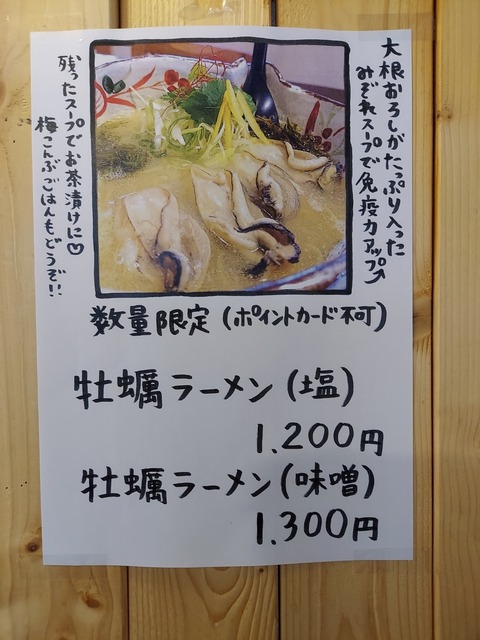 大根おろしがたっぷり入った
みぞれスープで免疫力アップ↗
残ったスープでお茶漬けに♡
梅こんぶごはんもどうぞ!!
数量限定(ポイントカード不可)
牡蠣ラーメン(塩)
1.200円
牡蠣ラーメン(味噌)
1.300円